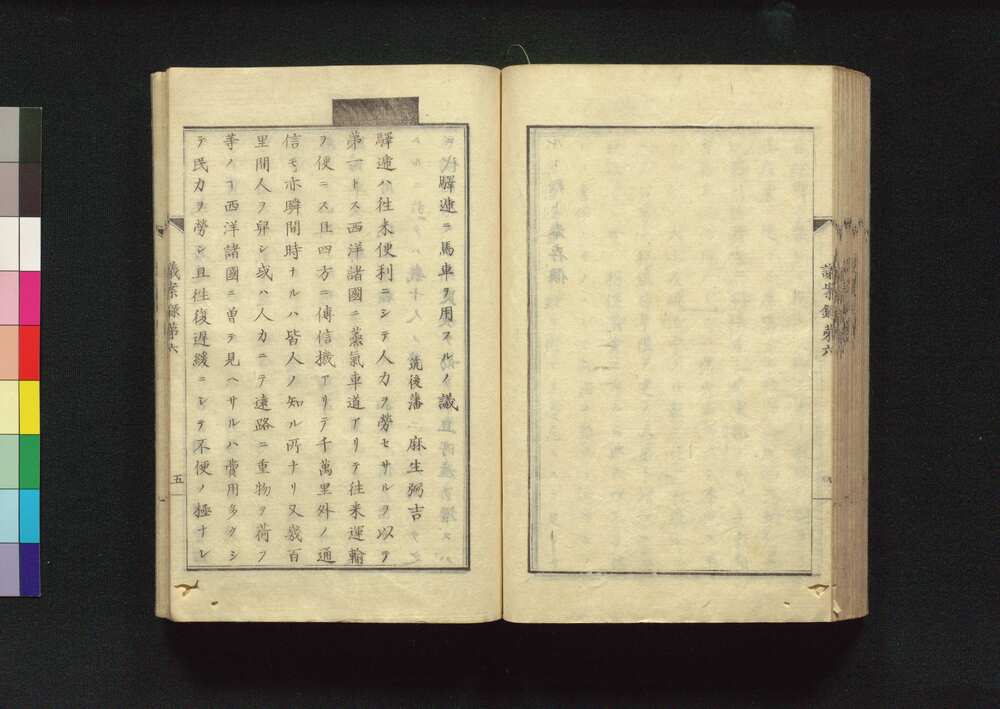 驛逓ニ馬車ヲ用スルノ議
筑後藩 麻生弼吉
驛逓ハ往来便利ニシテ人力ヲ勞セサルヲ以テ
第一トス西洋諸國ニ蒸氣車道アリテ往来運輸
ヲ便ニス且四方ニ傳信機アリテ千萬里外ノ通
信モ亦瞬間時ナルハ皆人ノ知ル所ナリ又幾百
里間人ヲ舁シ或ハ人力ニテ遠路ニ重物ヲ荷フ
等ノヿ西洋諸國ニ曽テ見ヘサルハ費用多クシ
テ民力ヲ勞シ且往復遅緩ニシテ不便ノ極ナレ
議案録第六
五